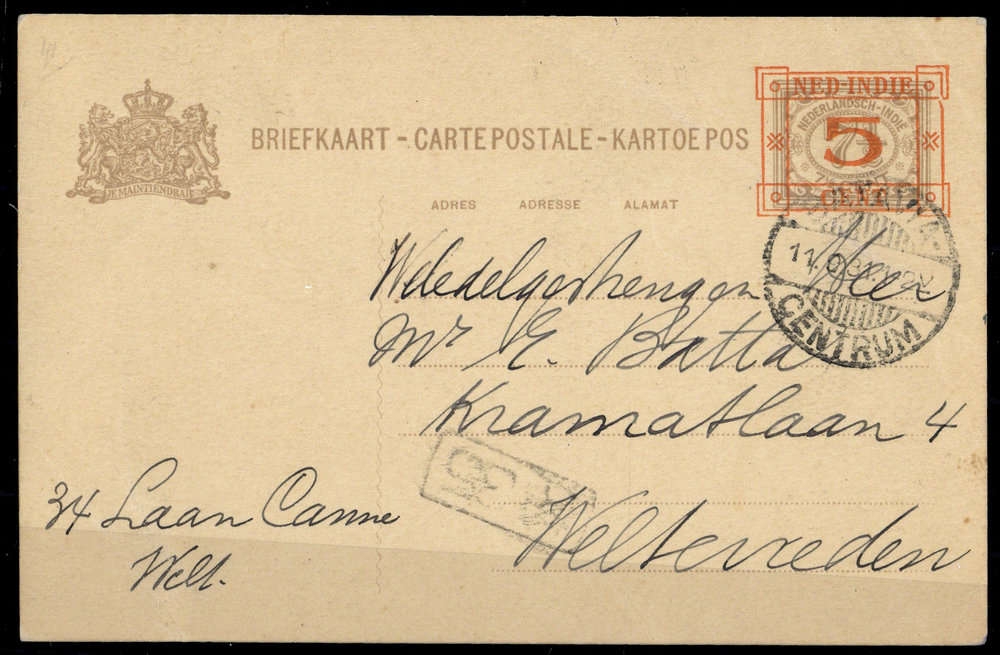 BRIEFKAART - CARTE POSTALE - KARTOE POS
NED-INDIE
NEDERLANDSCH-INDIË
5
CENT
JE MAINTIENDRAI
ADRES ADRESSE ALAMAT
CENTRUM
Weledelgestrengen Heer
Mr E. Batta
Kramatlaan 4
Weltevreden
34 Laan Canne
Welt.